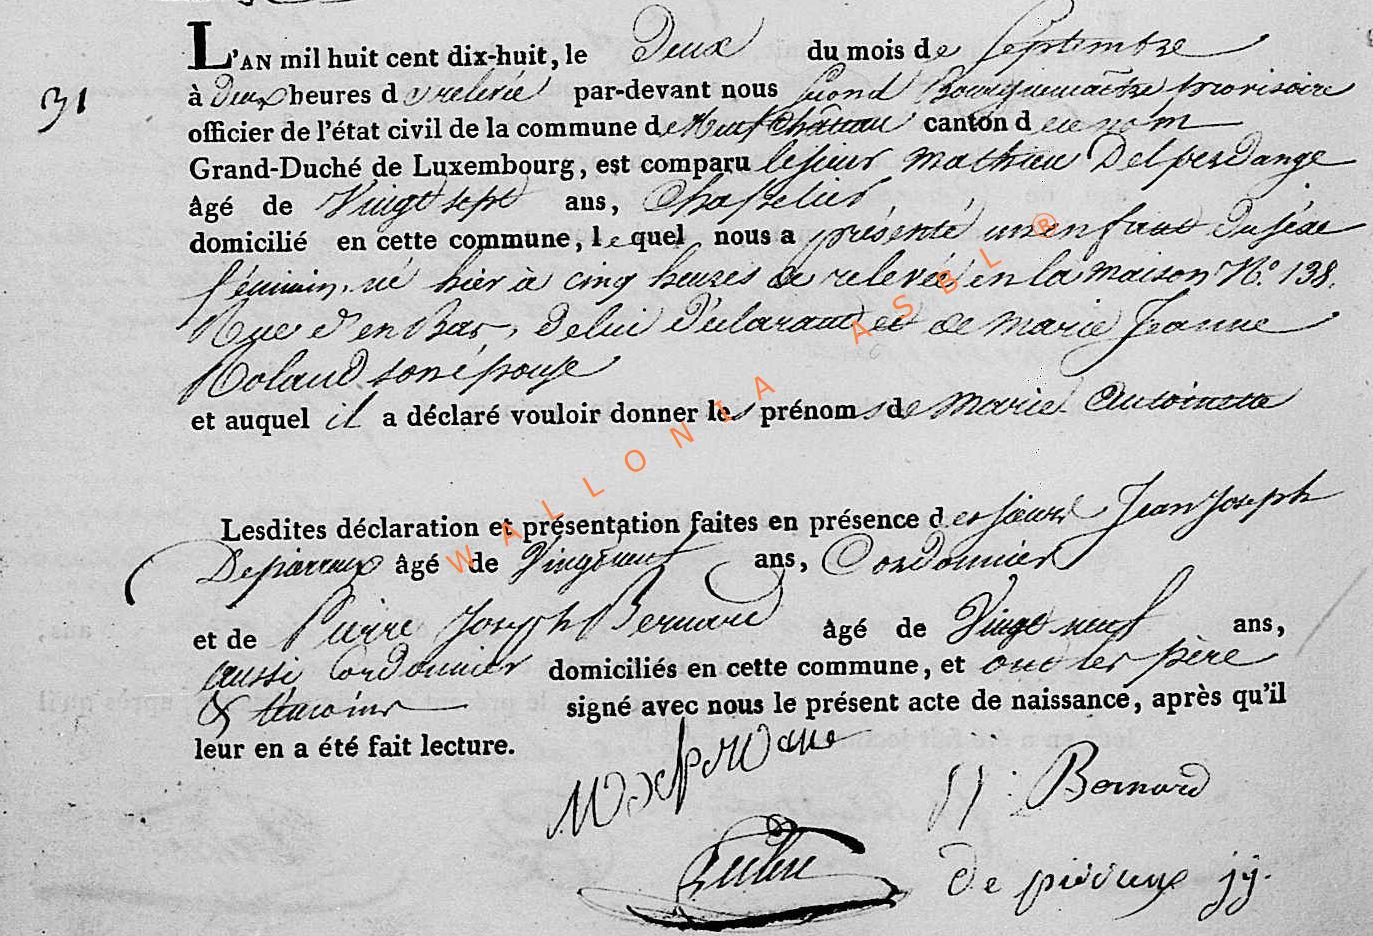 L'AN mil huit cent dix-huit, le Deux du mois de Septembre
31
à Deux heures de relevée par-devant nous second Bourguemaître provisoire
officier de l'état civil de la commune de Neufchâteau canton de ce nom
Grand-Duché de Luxembourg, est comparu le sieur Mathieu Delperdange
âgé de Vingt sept ans, Chapelier
domicilié en cette commune, lequel nous a présenté un enfant du sexe
féminin, né hier à cinq heures de relevée en la maison N.o 138.
Rue d'en Bas, de lui déclarant et de Marie Jeanne
Roland son épouse
et auquel il a déclaré vouloir donner les prénoms de Marie Antoinette
Lesdites déclaration et présentation faites en présence des sieurs Jean Joseph
Depierreux âgé de Vingt neuf ans, Cordonnier
et de Pierre Joseph Bernard âgé de Vingt neuf ans,
aussi Cordonnier domiciliés en cette commune, et ont les père
& témoins signé avec nous le présent acte de naissance, après qu'il
leur en a été fait lecture.
Bernard
De pierreux jj.
WALLONIA ASBL ®